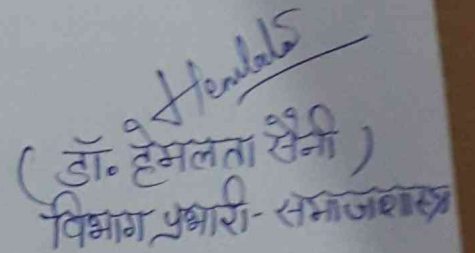 Hemlata
( डॉ. हेमलता सैनी )
विभाग प्रभारी- समाजशास्त्र